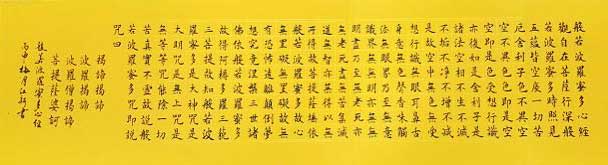 般若波羅蜜多心經
觀自在菩薩行深般
若波羅蜜多時照見
五蘊皆空度一切苦
厄舍利子色不異空
空不異色色即是空
空即是色受想行識
亦復如是舍利子是
諸法空相不生不滅
不垢不淨不增不減
是故空中無色無受
想行識無眼耳鼻舌
身意無色聲香味觸
法無眼界乃至無意
識界無無明亦無無
明盡乃至無老死亦
無老死盡無苦集滅
道無智亦無得以無
所得故菩提薩埵依
般若波羅蜜多故心
無罣礙無罣礙故無
有恐怖遠離顛倒夢
想究竟涅槃三世諸
佛依般若波羅蜜多
故得阿耨多羅三藐
三菩提故知般若波
羅蜜多是大神咒是
大明咒是無上咒是
無等等咒能除一切
苦真實不虛故說般
若波羅蜜多咒即說
咒曰
揭諦揭諦
波羅揭諦
波羅僧揭諦
菩提薩婆訶
般若波羅蜜多心經
丙申 書